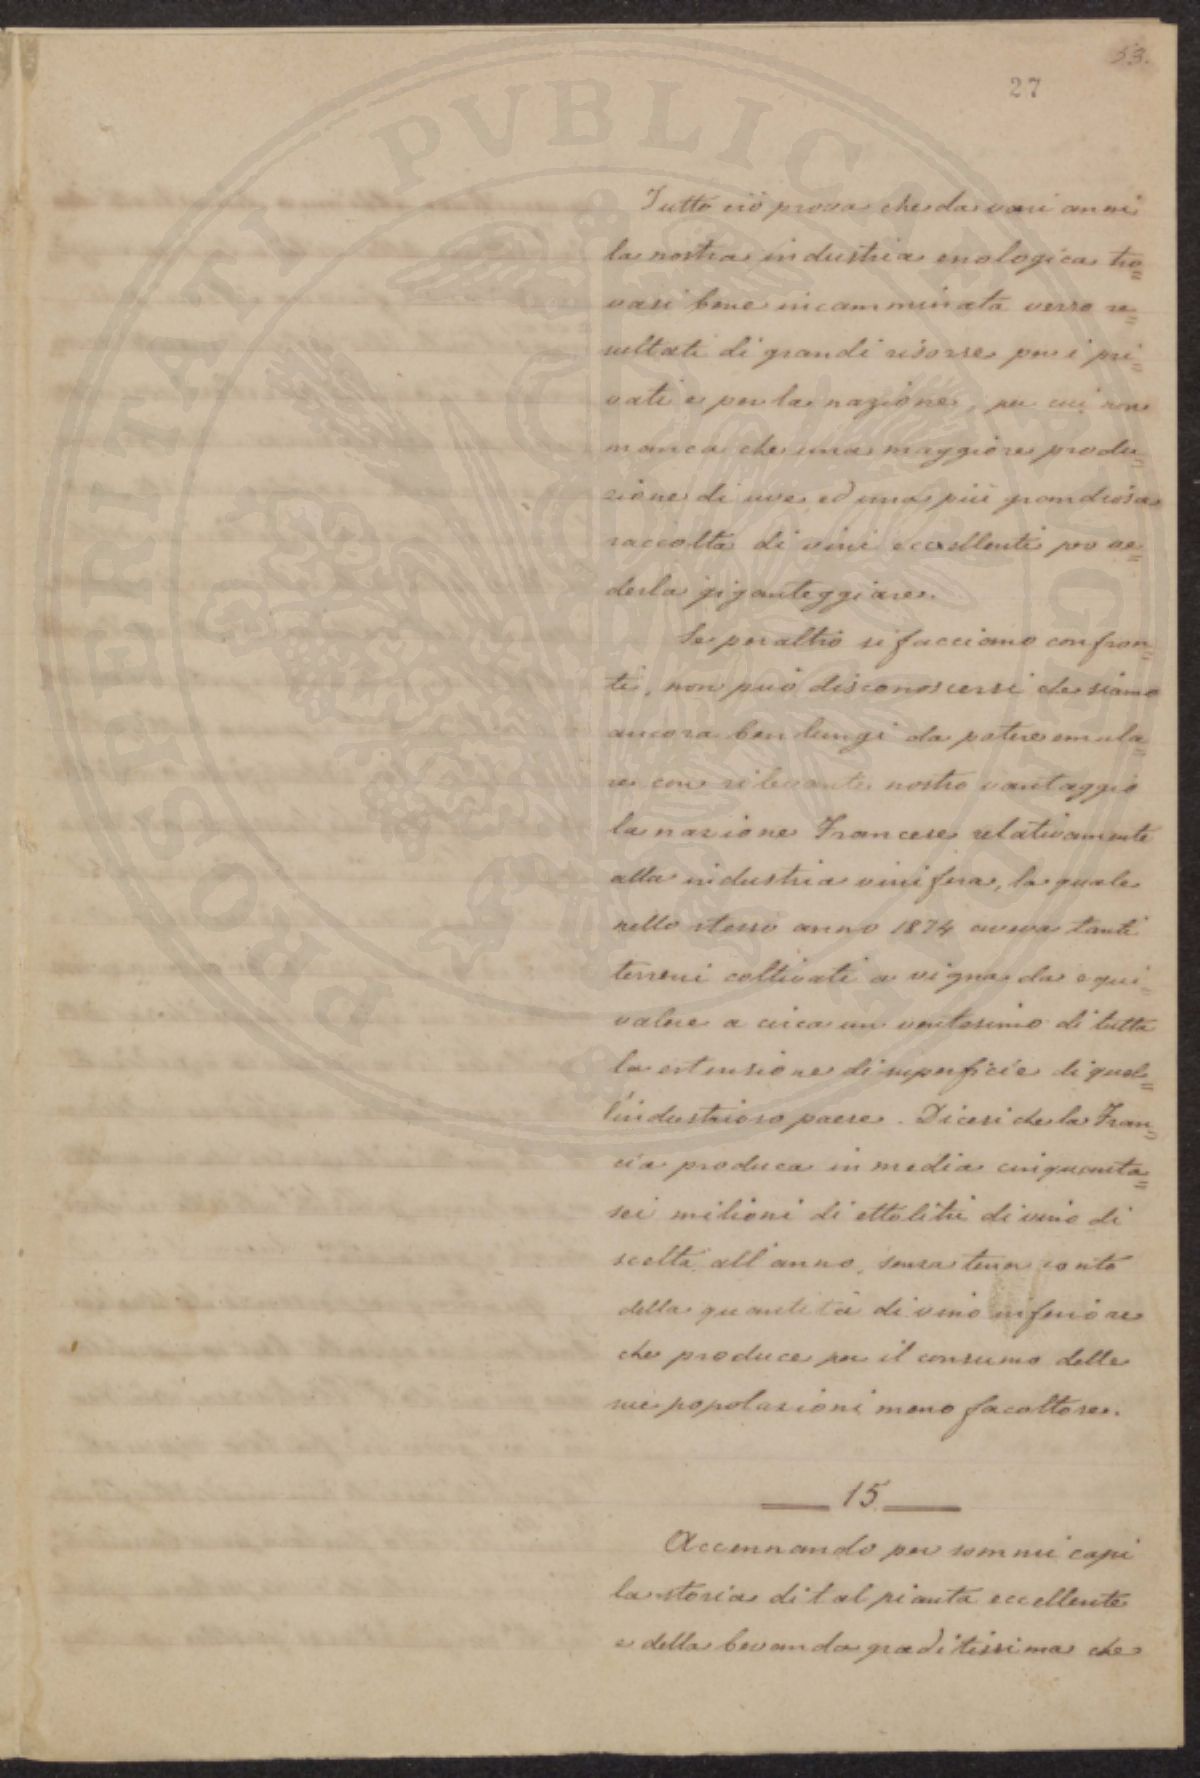 53.
27
PROSPERITATI PVBLICAE AVGENDAE
Tutto ciò prova che da vari anni
la nostra industria enologica tro=
vasi bene incamminata verso re=
sultati di grandi risorse per i pri=
vati e per la nazione, per cui non
manca che una maggiore produ=
zione di uve ed una più grandiosa
raccolta di vini eccellenti per ve=
derla giganteggiare.
Se peraltro si facciamo confron=
ti, non può disconoscersi che siamo
ancora ben lungi da potere emula=
re con rilevante nostro vantaggio
la nazione Francese relativamente
alla industria vinifera, la quale
nello stesso anno 1874 aveva tanti
terreni coltivati a vigna da equi=
valere a circa un ventesimo di tutta
la estensione di superficie di quel=
l'industrioso paese. Dicesi che la Fran=
cia produca in media cinquanta=
sei milioni di ettolitri di vino di
scelta all'anno, senza tener conto
della quantità di vino inferiore
che produce per il consumo delle
sue popolazioni meno facoltose.
15
Accennando per sommi capi
la storia di tal pianta eccellente
e della bevanda graditissima che